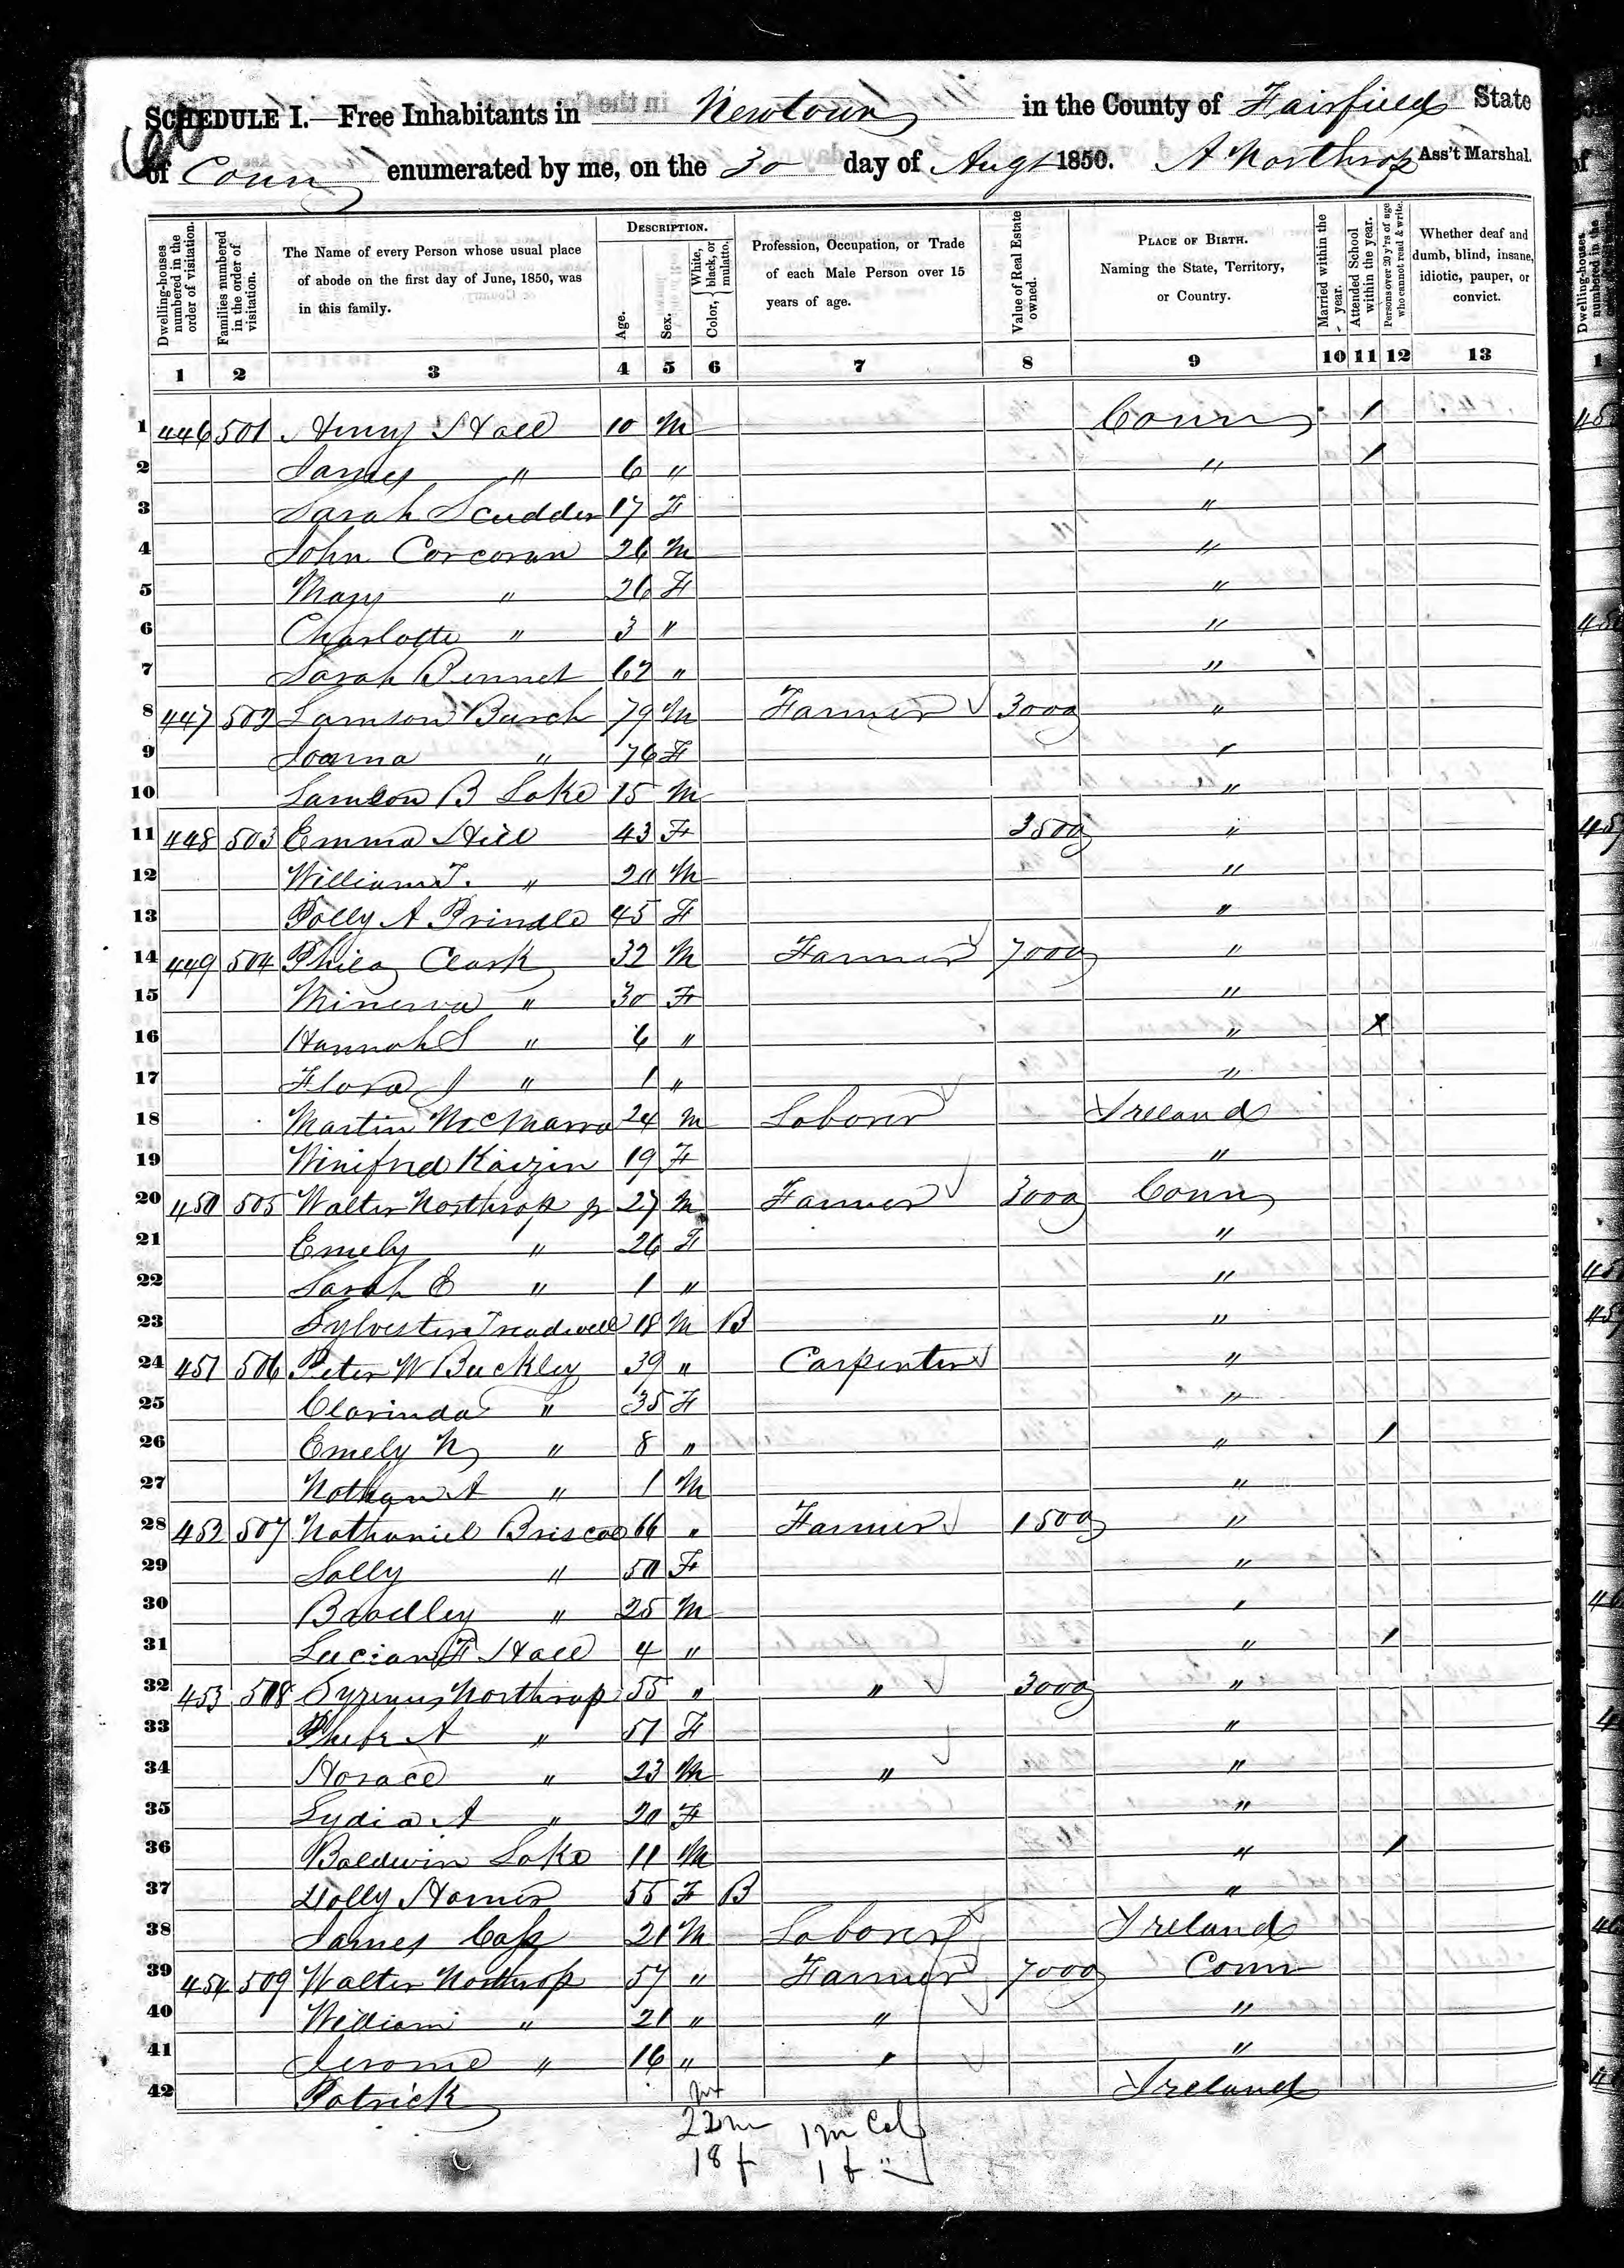 SCHEDULE I.—Free Inhabitants in Newtown in the County of Fairfield State
of Conn enumerated by me, on the 30 day of Augt 1850. A Northrop Ass't Marshal.
Dwelling-houses numbered in the order of visitation. Families numbered in the order of visitation. The Name of every Person whose usual place of abode on the first day of June, 1850, was in this family. DESCRIPTION. Age. Sex. Color, { White, black, or mulatto. Profession, Occupation, or Trade of each Male Person over 15 years of age. Value of Real Estate owned. PLACE OF BIRTH. Naming the State, Territory, or Country. Married within the year. Attended School within the year. Persons over 20 y'rs of age who cannot read & write. Whether deaf and dumb, blind, insane, idiotic, pauper, or convict.
1 2 3 4 5 6 7 8 9 10 11 12 13
1 446 501 Henry Hall 10 M Conn /
2 James " 6 " " /
3 Sarah Scudder 17 F "
4 John Corcoran 26 M "
5 Mary " 26 F "
6 Charlotte " 3 " "
7 Sarah Bennet 62 " "
8 447 502 Lamson Burch 79 M Farmer 3000 "
9 Joanna " 76 F "
10 Lamson B Lake 15 M "
11 448 503 Emma Hill 43 F 3500 "
12 William T. " 20 M "
13 Polly A Prindle 45 F "
14 449 504 Philo Clark 32 M Farmer 7000 "
15 Minerva " 30 F "
16 Hannah S " 6 " " x
17 Flora J " 1 " "
18 Martin McMarra 24 M Laborer Ireland
19 Winifred 19 F "
20 450 505 Walter Northrop Jr 27 M Farmer 3000 Conn
21 Emely " 26 F "
22 Sarah E " 1 " "
23 Sylvester Treadwell 18 M B "
24 451 506 Peter W Buckley 39 " Carpenter "
25 Clarinda " 35 F "
26 Emely N " 8 " " /
27 Nathan A " 1 M "
28 452 507 Nathaniel Briscoe 66 " Farmer 1500 "
29 Sally " 50 F "
30 Bradley " 25 M "
31 Lucian F Hall 4 " " /
32 453 508 Cyrenus Northrop 55 " " 3000 "
33 Phebe A " 51 F "
34 Horace " 23 M " "
35 Lydia A " 20 F "
36 Baldwin Lake 11 M " /
37 Dolly Homer 55 F B "
38 James Cass 21 M Laborer Ireland
39 454 509 Walter Northrop 57 " Farmer 7000 Conn
40 William " 21 " " "
41 Jerome " 16 " " "
42 Patrick M Ireland
22 m 1 m Col
18 f 1 f "